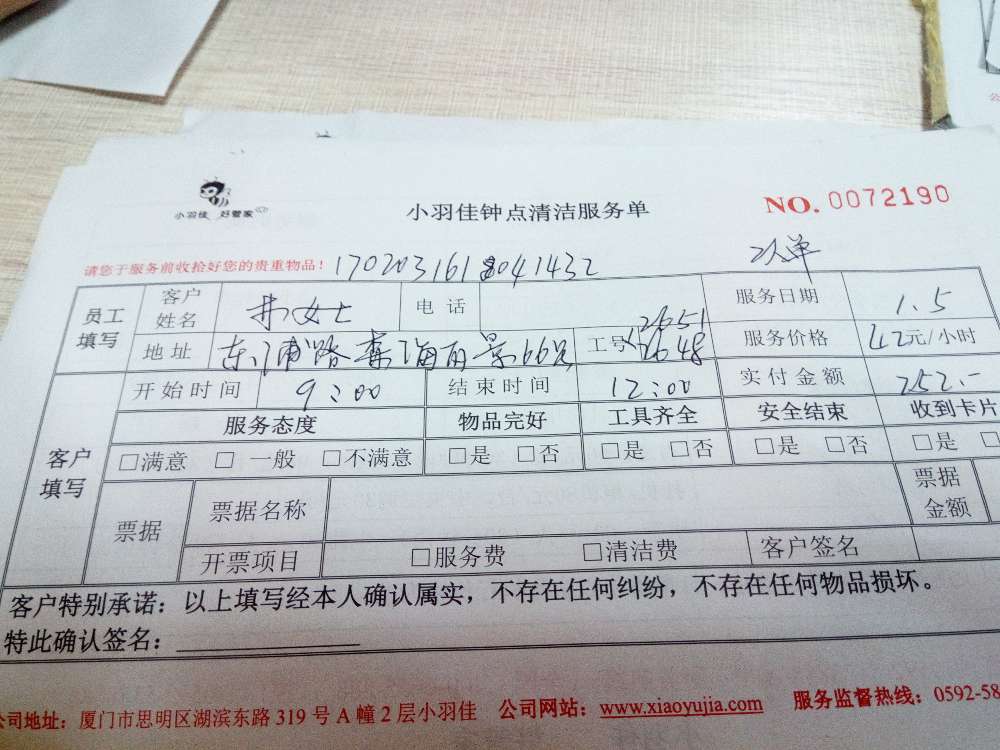 小羽佳 好管家
小羽佳钟点清洁服务单
NO. 0072190
请您于服务前收拾好您的贵重物品!
员工填写 客户姓名 井女士 电话 服务日期 1.5
地址 东浦路 海 景66 工号 2651 2648 服务价格 42元/小时
客户填写 开始时间 9:00 结束时间 12:00 实付金额 252.-
服务态度 物品完好 工具齐全 安全结束 收到卡片
□满意 □一般 □不满意 □是 □否 □是 □否 □是 □否 □是 □
票据 票据名称 票据金额
开票项目 □服务费 □清洁费 客户签名
客户特别承诺:以上填写经本人确认属实,不存在任何纠纷,不存在任何物品损坏。
特此确认签名:
公司地址:厦门市思明区湖滨东路 319 号 A 幢 2 层小羽佳 公司网站:www.xiaoyujia.com 服务监督热线:0592-58